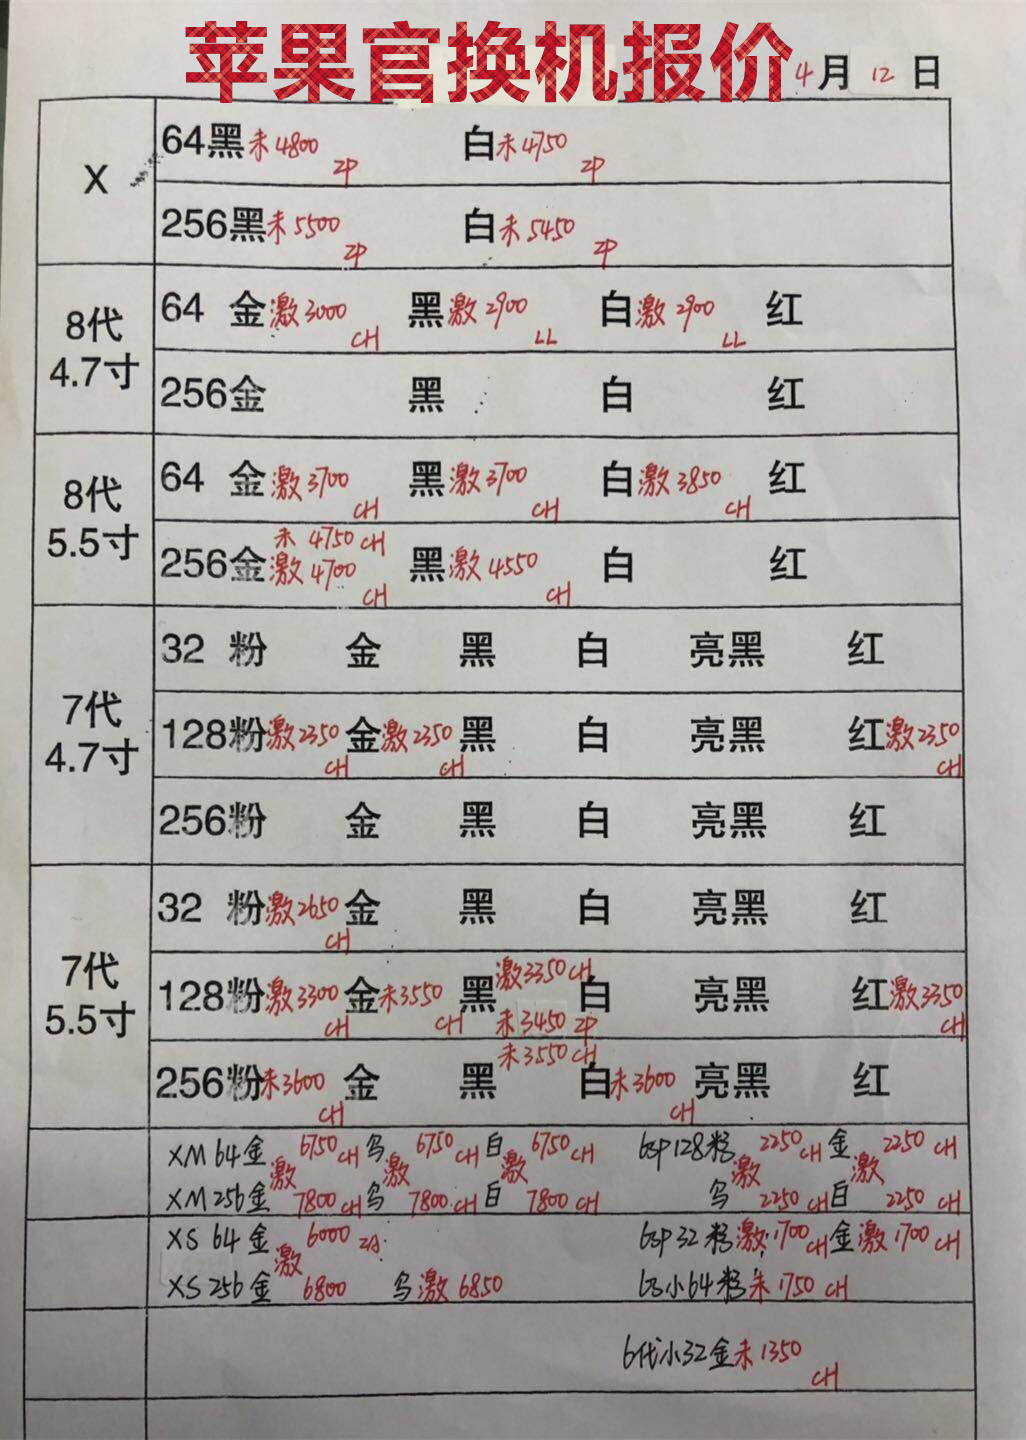 苹果官换机报价 4月12日
X
64黑未4800 ZP 白未4750 ZP
256黑未5500 ZP 白未5450 ZP
8代
4.7寸
64 金激3000 CH 黑激2900 LL 白激2900 LL 红
256金 黑 白 红
8代
5.5寸
64 金激3700 CH 黑激3700 CH 白激3850 CH 红
未4750 CH
256金激4700 CH 黑激4550 CH 白 红
7代
4.7寸
32 粉 金 黑 白 亮黑 红
128粉激2350 CH 金激2350 CH 黑 白 亮黑 红激2350 CH
256粉 金 黑 白 亮黑 红
7代
5.5寸
32 粉激2650 CH 金 黑 白 亮黑 红
激3350 CH
128粉激3300 CH 金未3550 CH 黑 白 亮黑 红激3350 CH
未3450 ZP
未3550 CH
256粉未3600 CH 金 黑 白未3600 CH 亮黑 红
XM 64金 6750 CH 乌 6750 CH 白 6750 CH 6sp128粉 2250 CH 金 2250 CH
激 激 激 激 激
XM 256金 7800 CH 乌 7800 CH 白 7800 CH 乌 2250 CH 白 2250 CH
XS 64金 6000 ZA 6sp 32粉激1700 CH 金激1700 CH
激
XS 256金 6800 乌激6850 6s小64粉未1750 CH
6代小32金未1350 CH